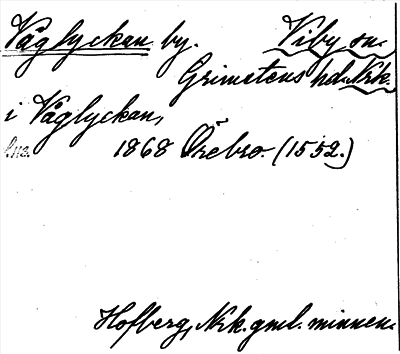 Våglyckan by. Viby sn.
Grimstens hd. Nrk.
i Våglyckan,
1868 Örebro. (1552.)
Hofberg, Nrk. gml. minnen.